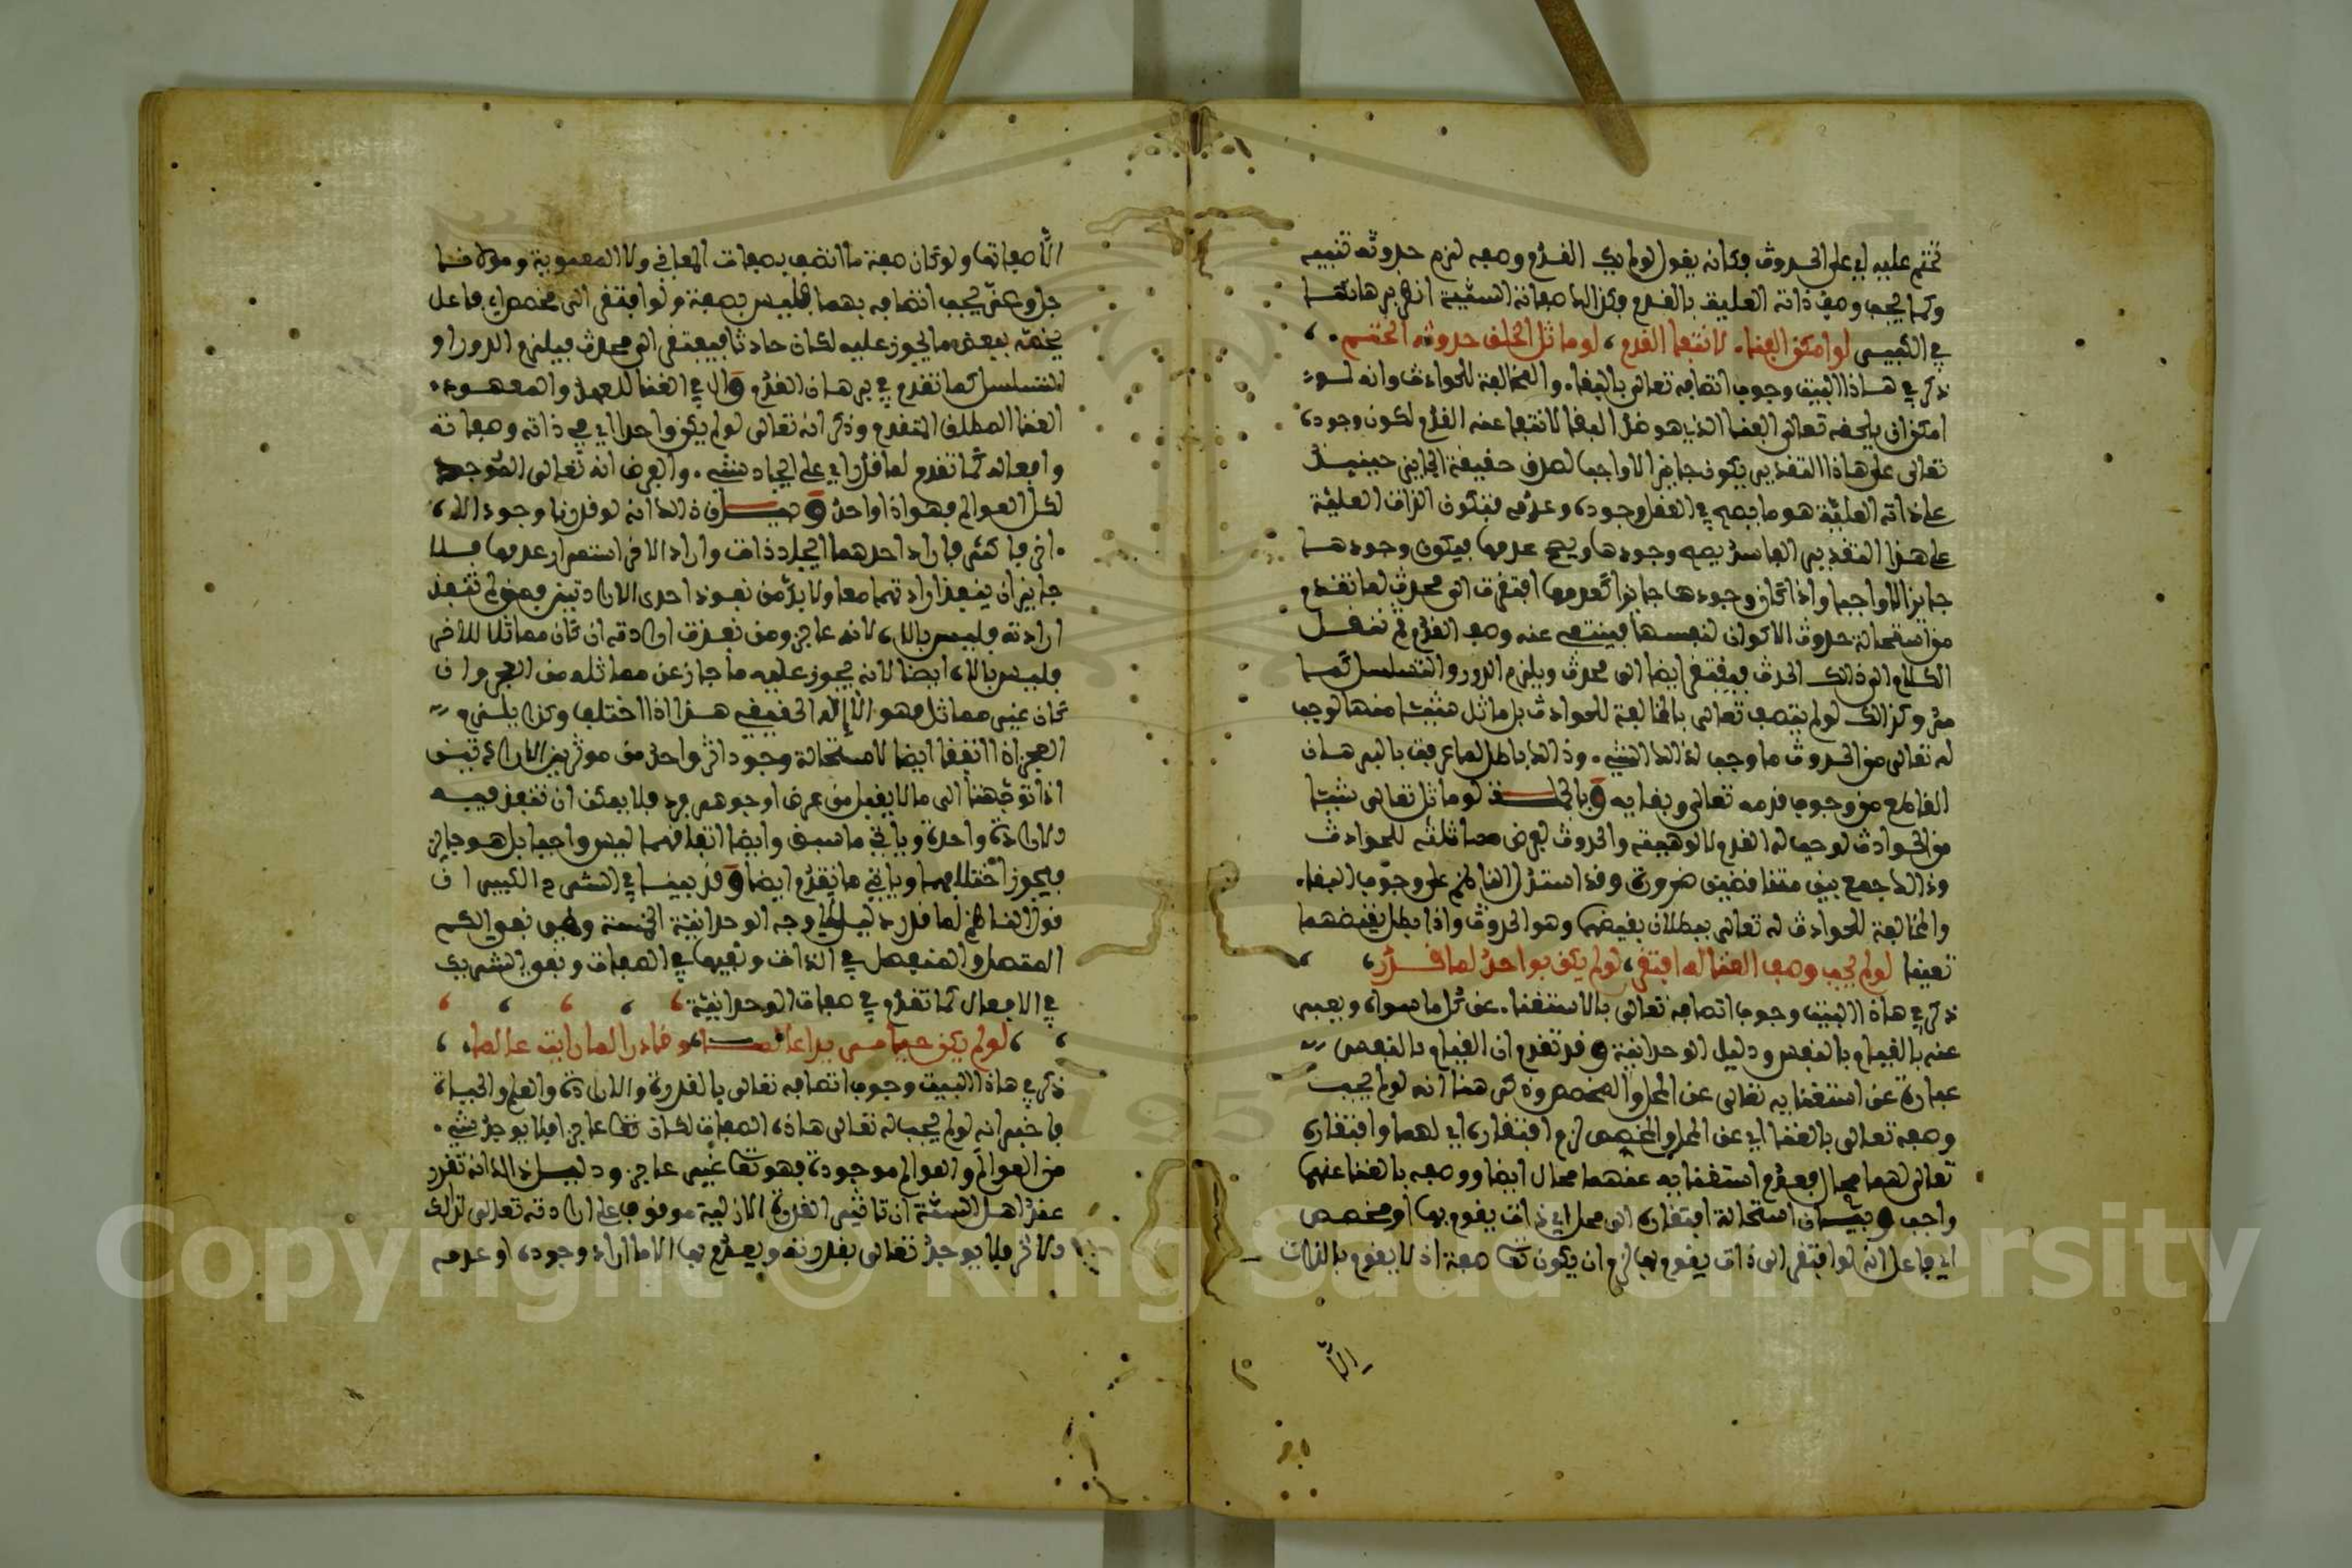 تحتم عليه اي على الحدوث وكانه يقول لو لم يك القدم وصفه لزم حدوثه تنبيه
وكما يجب وصف ذاته العلية بالقدم وكذالك صفاته السنية انظر برهانهما
في الكبير لو امكن الفناء لانتفا القدم، لو ماثل الخلف حدوثه انحتم،
ذكر في هاذا البيت وجوب اتصافه تعالى بالبقاء والمخالفة للحوادث وانه لو
امكن ان يلحفه تعالى الفنا الذي هو ضد البقا لانتفا عنه القدم لكون وجوده
تعالى على هاذا التقدير يكون جايزا لا واجبا لصدق حقيقة الجايز حينيذ
على ذاته العلية هو ما يصح في العقل وجوده وعدمه فتكون الذات العلية
على هذا التقدير الفاسد يصح وجودها ويصح عدمها فيكون وجودها
جايزا لا واجبا واذا كان وجودها جايزا كعدمها افتقرت الى محدث لما تقدم
من استحالة حدوث الاكوان لنفسها فينتفي عنه وصف القدم ثم ننقل
الكلام الى ذالك المحدث فيفتقر ايضا الى محدث ويلزم الدور والتسلسل كما
مر وكذالك لو لم يتصف تعالى بالمخالفة للحوادث بل ماثل شيئا منها لوجب
له تعالى من الحدوث ما وجب لذالك الشيء وذالك باطل لما عرفت بالبرهان
القاطع من وجوب قدمه تعالى وبقايه وبالجملة لو ماثل تعالى شيئا
من الحوادث لوجب له القدم لالوهيته والحدوث لفرض مماثلته للحوادث
وذالك جمع بين متنافضين ضرورة وقد استدل الناظم على وجوب البقاء
والمخالفة للحوادث له تعالى ببطلان نقيضهما وهو الحدوث واذا بطل نقيضهما
تعينا لو لم يجب وصف الغنا له افتقر، لو لم يكن بواحد لما قدر،
ذكر في هاذا البيت وجوب اتصافه تعالى بالاستغناء عن كل ما سواه ويعبر
عنه بالقيام بالنفس ودليل الوحدانية وقد تقدم ان القيام بالنفس
عبارة عن استغنايه تعالى عن المحل والمخصص وذكر هنا انه لو لم يجب
وصفه تعالى بالغنا اي عن المحل والمخصص لزم افتقاره اي لهما وافتقاره
تعالى لهما محال فعدم استغنايه عنهما محال ايضا ووصفه بالغنا عنهما
واجب وبيان استحالة افتقاره الى محل اي ذات يقوم بها او مخصص
اي فاعل انه لو افتقر الى ذات يقوم بها لزم ان يكون تعا صفة اذ لا يقوم بالذات
الا
الا صفاتها ولو كان صفة ما اتصف بصفات المعاني ولا المعنوية ومولانا
جل وعز يجب اتصافه بهما فليس بصفة ولو افتقر الى مخصص اي فاعل
يخصه ببعض ما يجوز عليه لكان حادثا فيفتقر الى محدث فيلزم الدور او
التسلسل كما تقدم في برهان القدم وال في الغنا للعهد والمعهود
الغنا المطلق المتقدم وذكر انه تعالى لو لم يكن واحدا اي في ذاته وصفاته
وافعاله كما تقدم لما قدر اي على ايجاد شيء والفرض انه تعالى الموجد
لكل العوالم فهو اذا واحد وبيان ذالك انه لو قدرنا وجود الاه
اخر فاكثر فاراد احدهما ايجاد ذات واراد الاخر استمرار عدمها فلا
جايز ان ينفذ ارادتهما معا ولا بد من نفوذ احدى الارادتين فمن لم تنفذ
ارادته فليس بالاه لانه عاجز ومن نفذت ارادته ان كان مماثلا للاخر
فليس بالاه ايضا لانه يجوز عليه ما جاز عن مماثله من العجز وان
كان غير مماثل فهو الاله الحقيقي هذا اذا اختلف وكذا يلزم
العجز اذا اتفقا ايضا لاستحالة وجود اثر واحد من موثرين الارادتين
اذا توجهتا الى ما لا يقبل من عرض او جوهر فرد فلا يمكن ان تنفذ فيه
الارادة واحدة وياتي ما سبق وايضا اتفاقهما ليس واجبا بل هو جايز
فيجوز اختلافهما وياتي ما تقدم ايضا وقد بينا في الشرح الكبير ان
قول الناظم لما قدر دليل اوجه الوحدانية الخمسة وهي نفي الكم
المتصل والمنفصل في الذات ونفيهما في الصفات ونفي الشريك
في الافعال كما تقدم في صفات الوحدانية
لو لم يكن حيا مريدا عالما، وقادرا لما رايت عالما،
ذكر في هاذا البيت وجوب اتصافه تعالى بالقدرة والارادة والعلم والحياة
فاخبر انه لو لم يجب له تعالى هاذه الصفات لكان تعا عاجزا فلا يوجد شيء
من العوالم والعوالم موجودة فهو تعا غير عاجز ودليل ذالك انه تقرر
عند اهل السنة ان تاثير القدرة الازلية موقوف على ارادته تعالى لذالك
الاثر فلا يوجد تعالى بقدرته ويعدم بها الا ما اراد وجوده او عدمه
Copyright © King Saud University